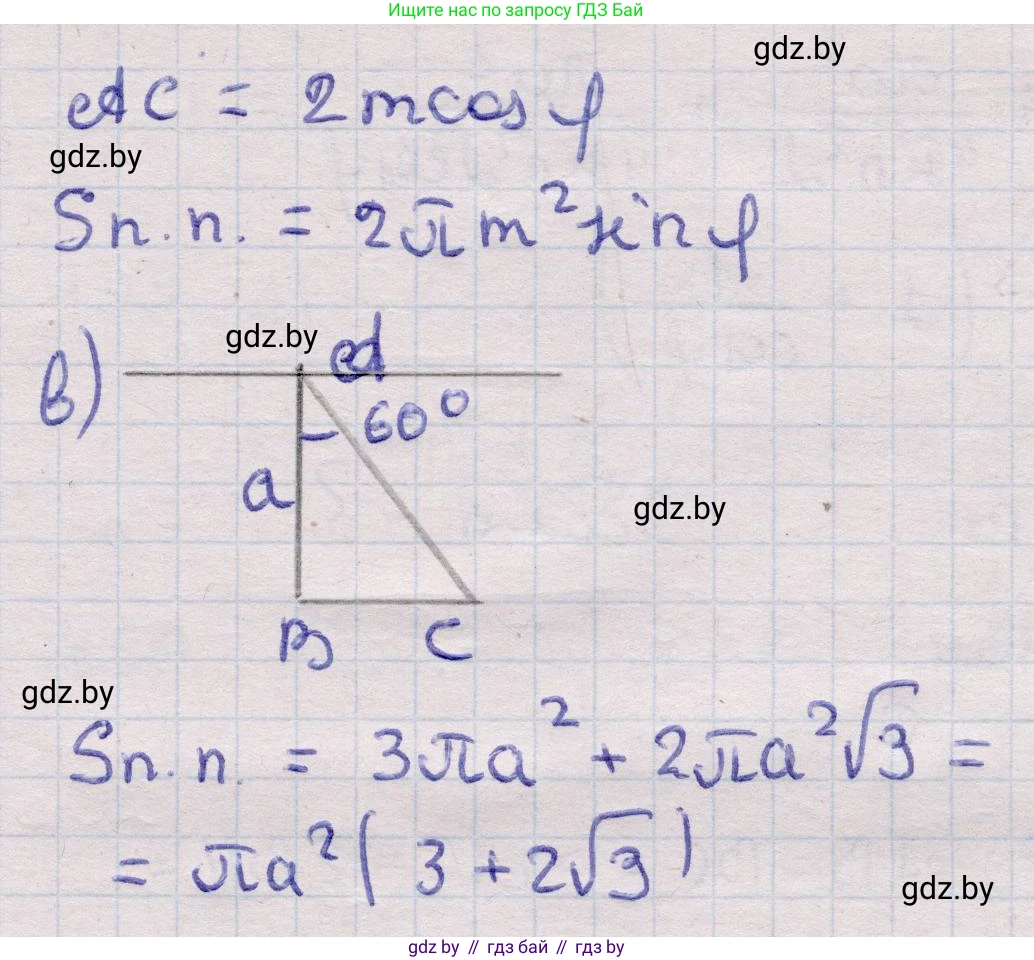 Ищите нас по запросу ГДЗ Бай
gdz.by
AC = 2m cos φ
gdz.by
Sп.п. = 2πm² sin φ
gdz.by
A
в)
60°
a
gdz.by
B C
gdz.by
Sп.п. = 3πa² + 2πa²√3 =
= πa² ( 3 + 2√3 )
gdz.by
gdz.by // гдз бай // гдз by